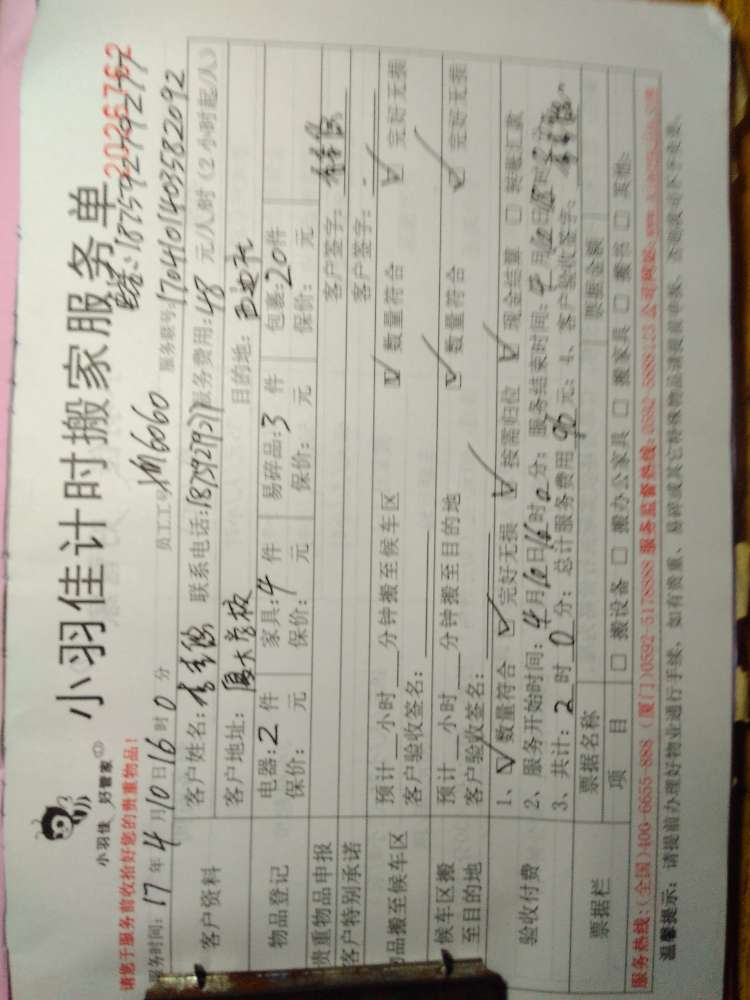 小羽佳 好管家
小羽佳计时搬家服务单
2026762
请您于服务前收拾好您的贵重物品!
服务时间: 17年4月10日16时0分 员工工号: XM6060 服务联号: 1704101403582092
客户资料
客户姓名: 联系电话: 服务费用: 48元/人/时(2小时起/人)
客户地址: 厦大学校 目的地:
物品登记
电器: 2件 家具: 4件 易碎品: 3件 包裹: 20件
保价: 元 保价: 元 保价: 元 保价: 元
贵重物品申报 客户签字:
客户特别承诺 客户签字:
物品搬至候车区
预计 小时 分钟搬至候车区 ☑ 数量符合 ☑ 完好无损
客户验收签名:
候车区搬至目的地
预计 小时 分钟搬至目的地 ☑ 数量符合 ☑ 完好无损
客户验收签名:
验收付费
1、☑ 数量符合 ☑ 完好无损 ☑ 按需归位 ☑ 现金结算 □ 转账汇款
2、服务开始时间: 4月10日16时0分; 服务结束时间: 4月10日18时
3、共计: 2时0分; 总计服务费用 96元; 4、客户验收签字:
票据栏
票据名称 票据金额
项目 □ 搬设备 □ 搬办公家具 □ 搬家具 □ 搬书 □ 其他:
服务热线:(全国)400-6655-888 (厦门)0592-5178888 服务监督热线:0592-5888123 公司网站:
温馨提示: 请提前办理好物业通行手续,如有贵重、易碎或其它特殊物品请提前申报,